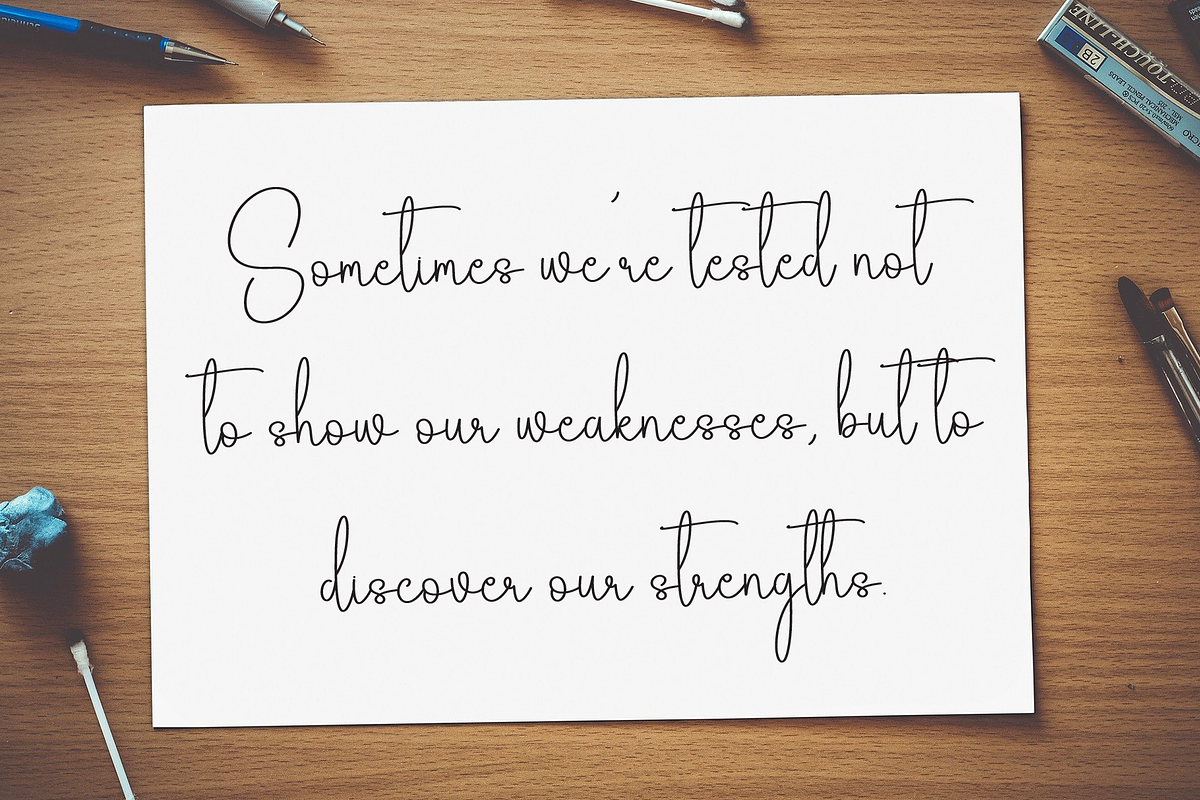 Sometimes we're tested not
to show our weaknesses, but to
discover our strengths.
2B
MECHANICAL PENCIL LEADS